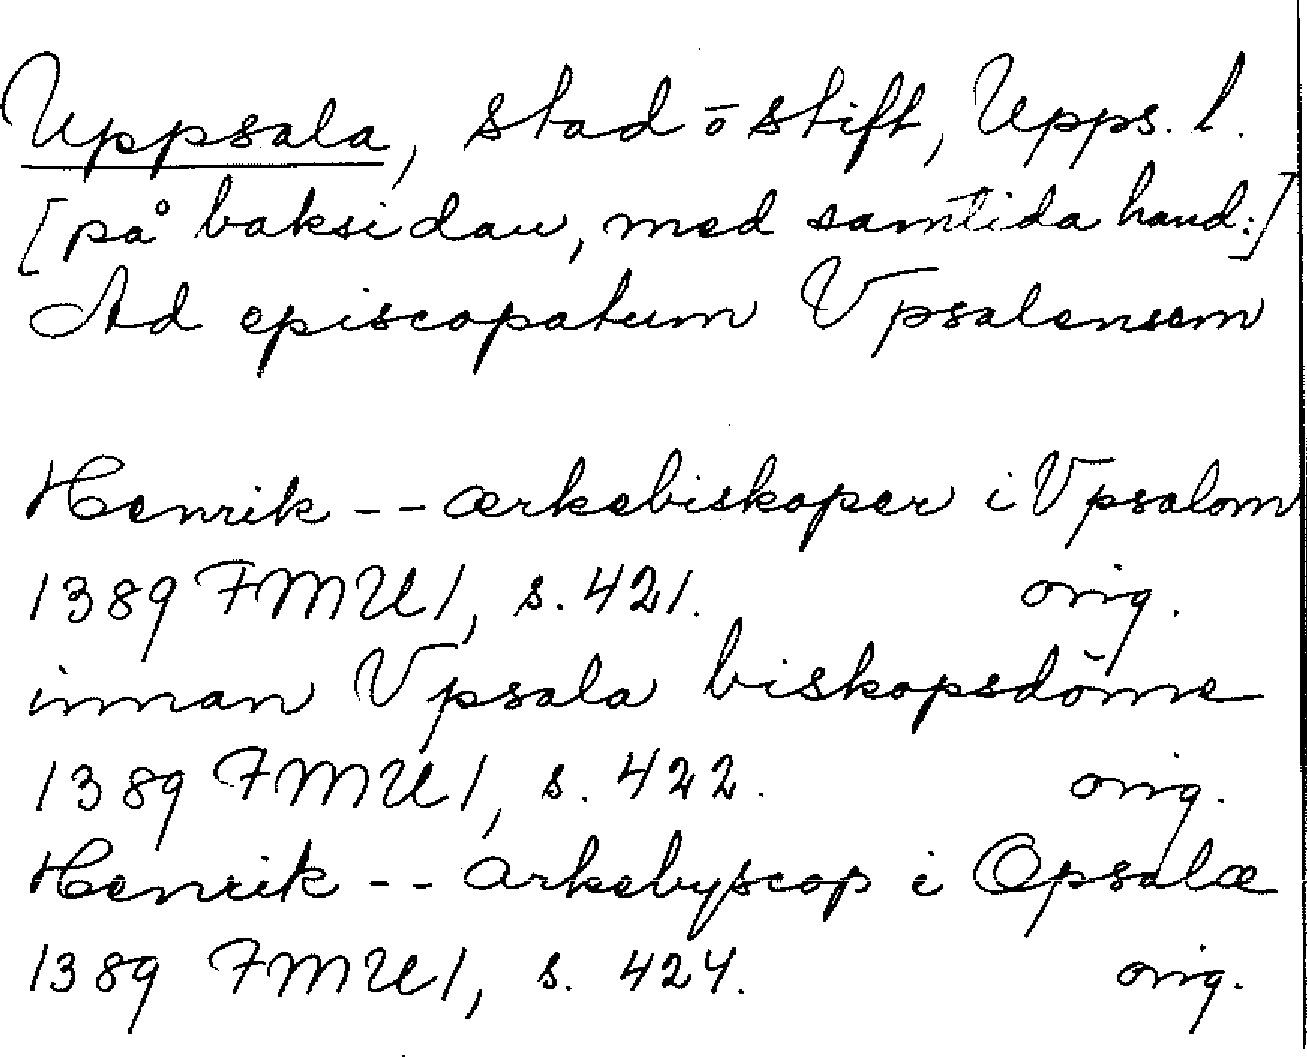 Uppsala, stad o stift, Upps. l.
[på baksidan, med samtida hand:]
Ad episcopatum Vpsalensem
Henrik -- ærkebiskoper i Vpsalom
1389 FMU 1, s. 421. orig.
innan Vpsala biskopsdöme
1389 FMU 1, s. 422. orig.
Henrik -- arkebyscop i Opsalæ
1389 FMU 1, s. 424. orig.